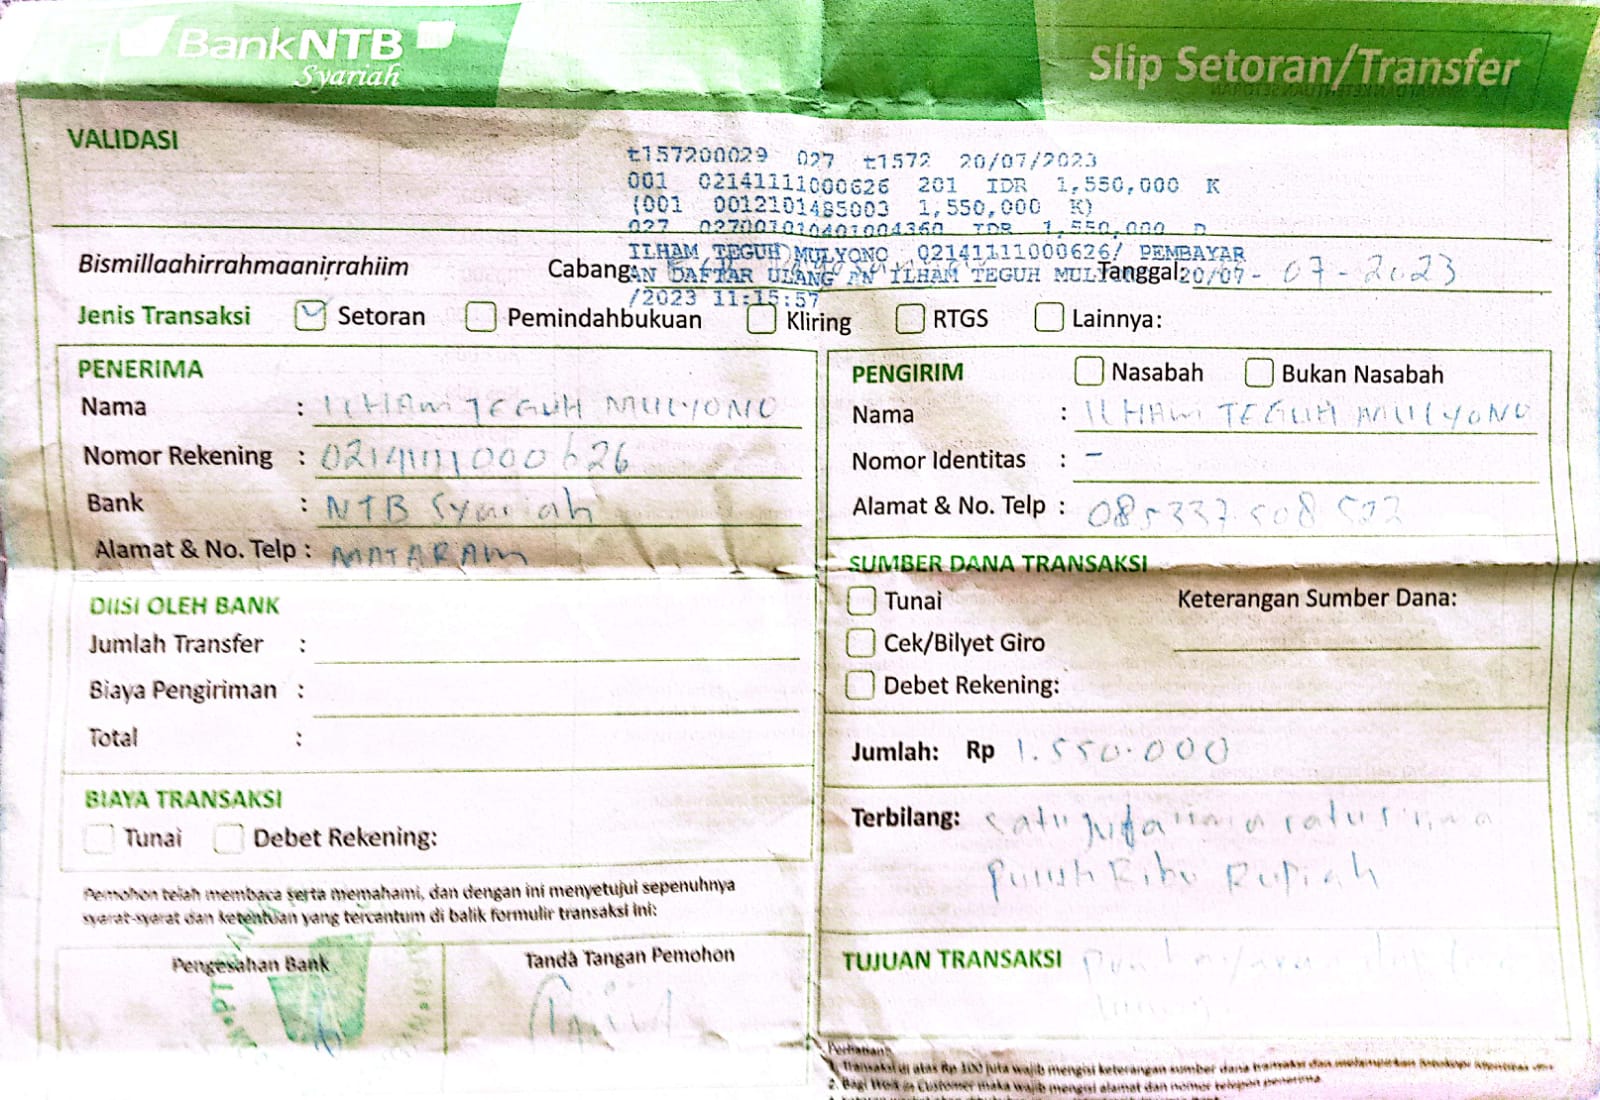 BankNTB
Syariah
Slip Setoran/Transfer
VALIDASI
t157200029 027 t1572 20/07/2023
001 02141111000626 201 IDR 1,550,000 K
(001 0012101485003 1,550,000 K)
027 027001010401004360 IDR 1,550,000 D
ILHAM TEGUH MULYONO 02141111000626/ PEMBAYAR
AN DAFTAR ULANG AN ILHAM TEGUH MUL 20/07
/2023 11:15:57
Bismillaahirrahmaanirrahiim Cabang: Tanggal: - 07 - 2023
Jenis Transaksi Setoran Pemindahbukuan Kliring RTGS Lainnya:
PENERIMA
Nama : ILHAM TEGUH MULYONO
Nomor Rekening : 02141111000626
Bank : NTB Syariah
Alamat & No. Telp : MATARAM
PENGIRIM Nasabah Bukan Nasabah
Nama : ILHAM TEGUH MULYONO
Nomor Identitas : -
Alamat & No. Telp : 085337508522
DIISI OLEH BANK
Jumlah Transfer :
Biaya Pengiriman :
Total :
BIAYA TRANSAKSI
Tunai Debet Rekening:
SUMBER DANA TRANSAKSI
Tunai Keterangan Sumber Dana:
Cek/Bilyet Giro
Debet Rekening:
Jumlah: Rp 1.550.000
Terbilang: satu juta lima ratus lima
puluh Ribu Rupiah
Pemohon telah membaca serta memahami, dan dengan ini menyetujui sepenuhnya
syarat-syarat dan ketentuan yang tercantum di balik formulir transaksi ini:
Pengesahan Bank
Tanda Tangan Pemohon
TUJUAN TRANSAKSI
Perhatian:
1. Transaksi di atas Rp 100 juta wajib mengisi keterangan sumber dana transaksi dan melampirkan fotokopi identitas
2. Bagi Walk in Customer maka wajib mengisi alamat dan nomor telepon penerima.